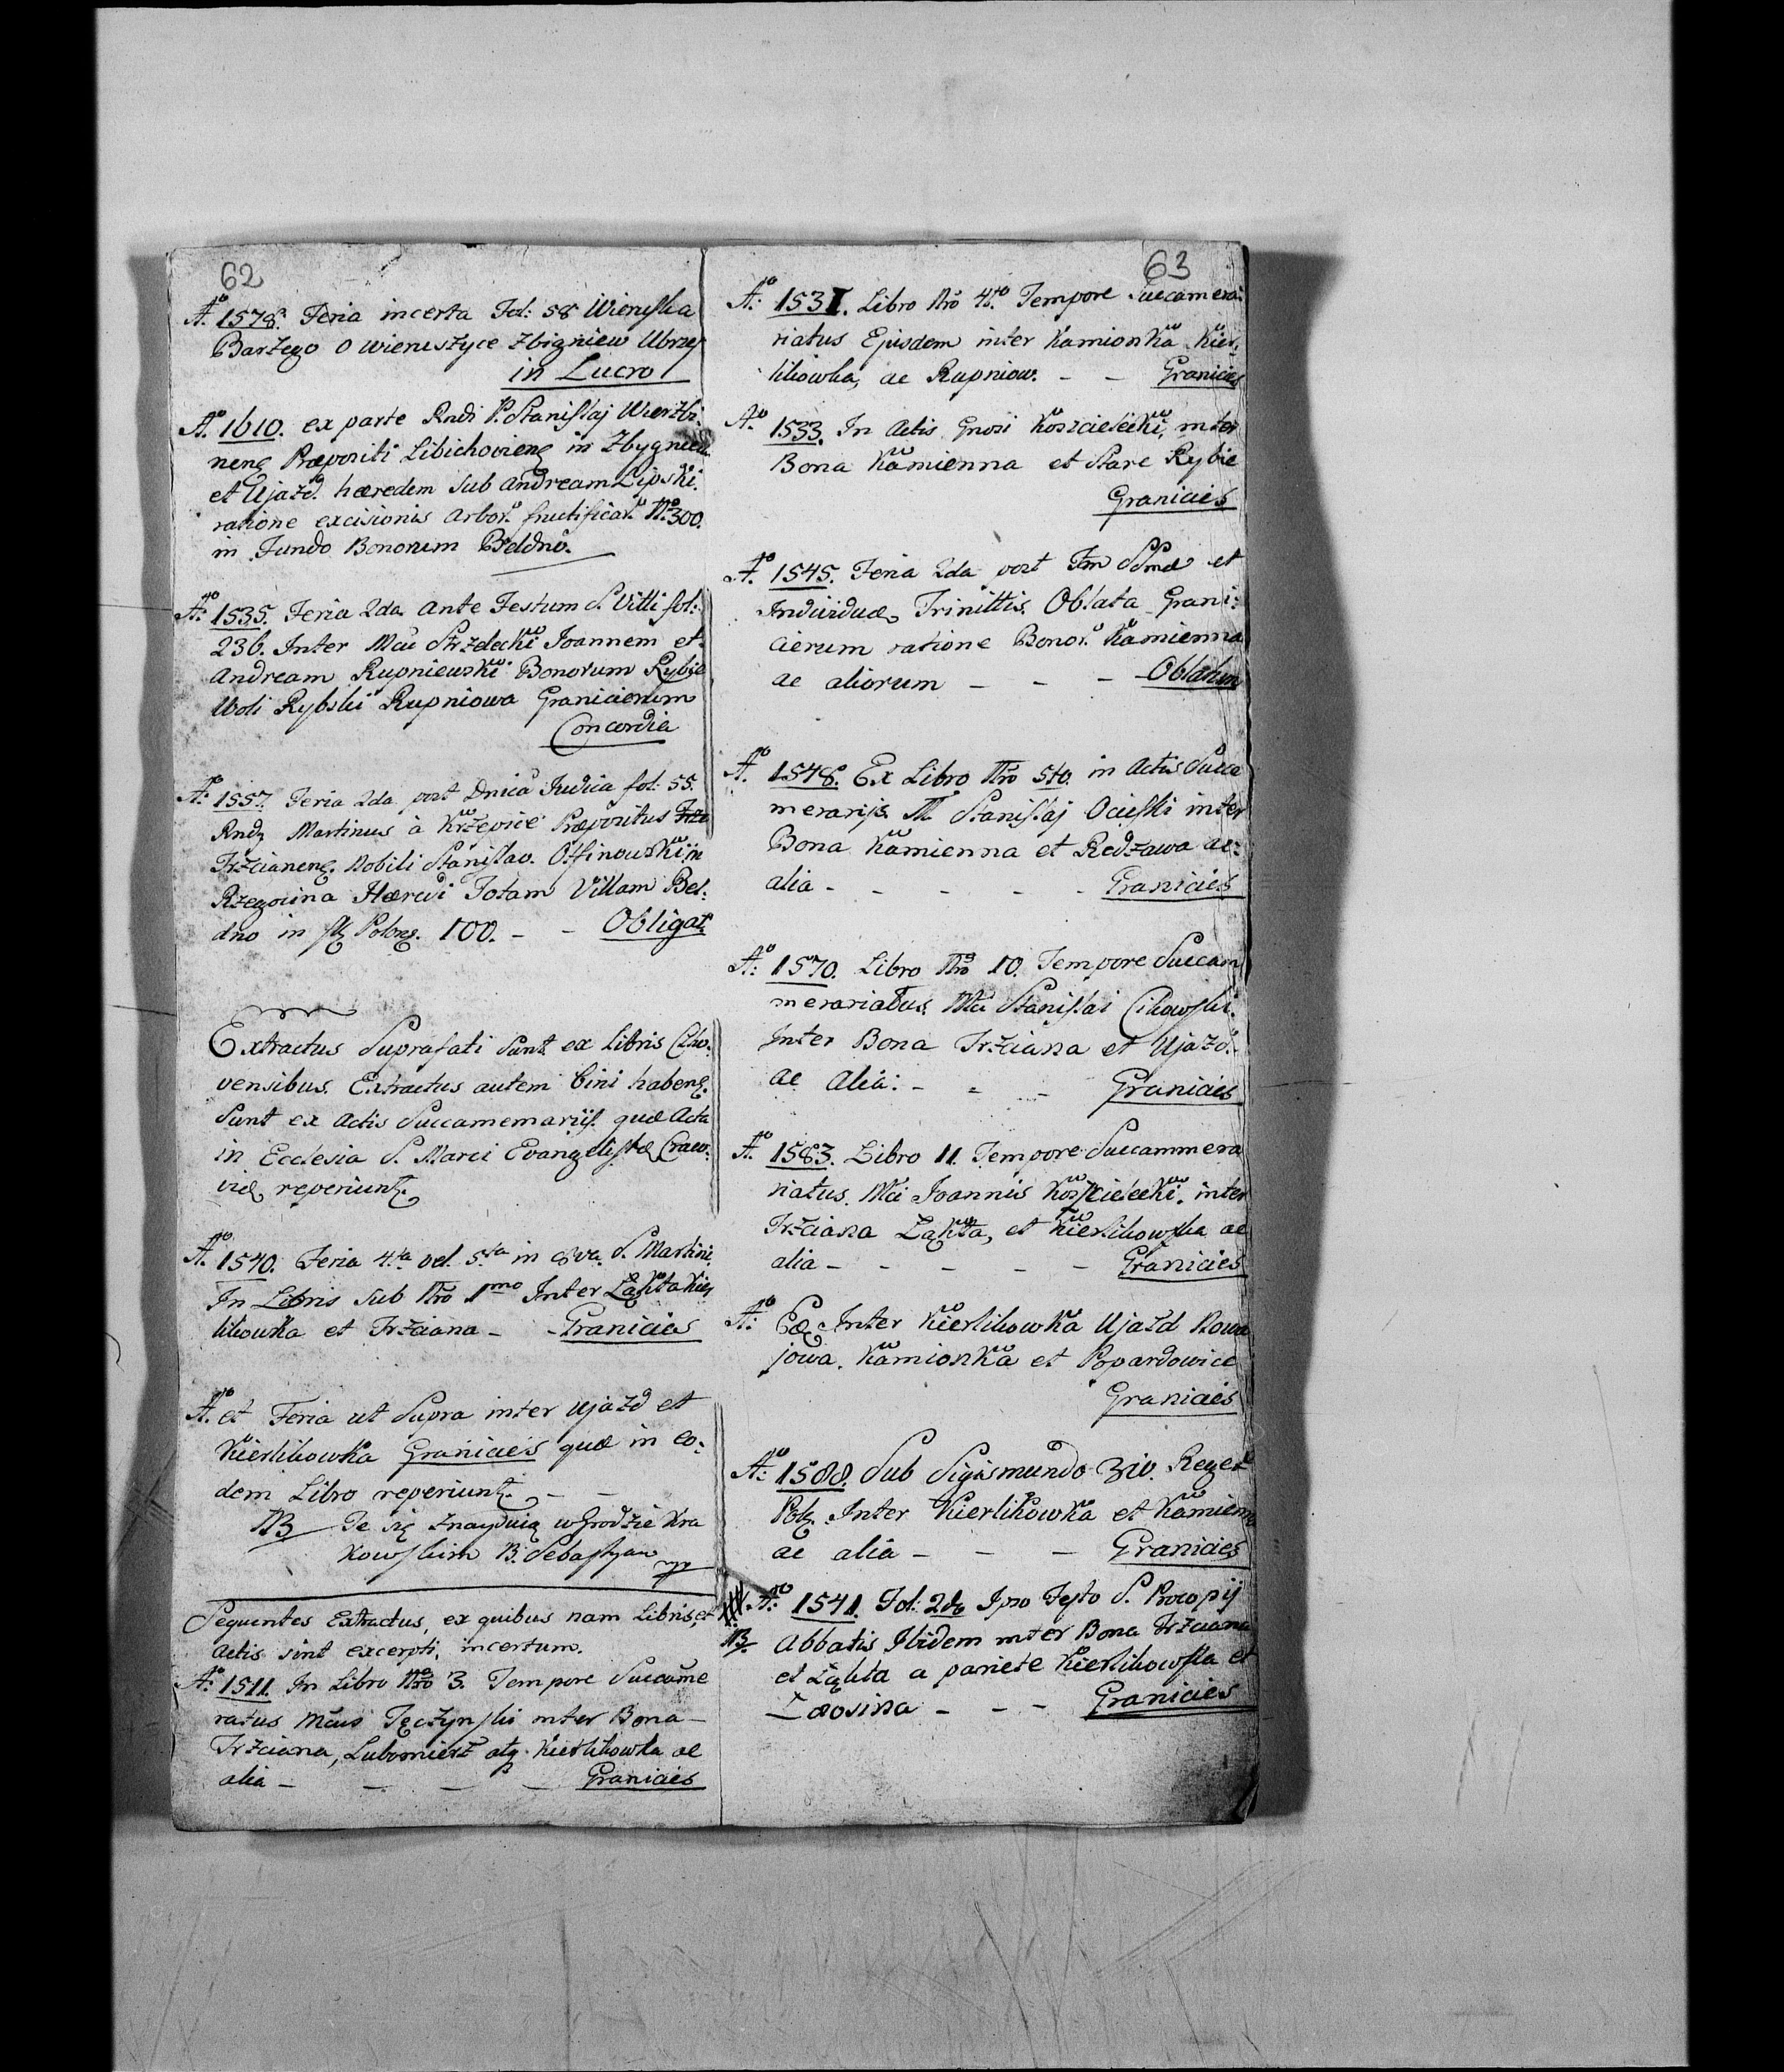 62
Aº 1578. Feria incerta Fol: 58 Wieruska
Barzego o wieruszyce Zbigniew Ubrzej
in Lucro
Aº 1610. ex parte Rndi P. Stanislaj Wierzbi:
neng Præpositi Libichovieng in Zbygniew
et Ujazd. hæredem sub Andream Lipski.
ratione excisionis arbor. fructificar. Nº 300.
in Fundo Bonorum Beldno.
Aº 1535. Feria 2da Ante Festum S. Viti fol:
236. Inter Mcu Strzelecki Joannem et
Andream Rupniewski Bonorum Rybie
Woli Rybski Rupniowa Granicierum
Concordia
Aº 1557. Feria 2da post Dnica Judica fol: 55.
Rndg Martinus à Krzepice Præpositus
Trzcianeng. Nobili Stanislao Otfinowski in
Rzegocina Hæredi Totam Villam Bel:
dno in Polong. 100. - - Obligat
Extractus Suprafati Sunt ex Libris Cho:
vensibus. Extractus autem bini habeng.
Sunt ex Actis Succamemariis. quæ Acta
in Ecclesia S. Marci Evangelistæ Craco:
viæ reperiunt.
Aº 1540. Feria 4.ta vel 5.ta in 8va S. Martini,
In Libris sub Nro 1mo Inter Łąkta Kier
likowka et Trzciana - - Granicies
Aº et Feria ut Supra inter Ujazd et
Kierlikowka Granicies quæ in eo:
dem Libro reperiunt. - -
NB Te się znayduią w Grodzie Kra
kowskim B. Sebastyan
Sequentes Extractus, ex quibus nam Libris, et
Actis sint excerpti, incertum.
Aº 1511. In Libro Nro 3. Tempore Succame
ratus Mcus Tęczynski inter Bona -
Trzciana, Lubomierz atq. Kierlikowka ac
alia - - - - Granicies
63
Aº: 1531. Libro Nro 4to Tempore Succamera:
riatus Ejusdem inter Kamionka Kier:
likowka, ac Rupniow. - - Granicies
Aº 1533. In Actis Gnosi Koszcielecki, inter
Bona Kamienna et Stare Rybie
Granicies
Aº 1545. Feria 2da post Fm SSmæ et
Individuæ Trinittis. Oblata Grani:
cierum ratione Bonor. Kamienna
ac aliorum - - - Oblatum
Aº 1548. Ex Libro Nro 5to in Actis Succa
merarijs M Stanislaj Ocieski inter
Bona Kamienna et Redzawa ac
alia - - - - - Granicies
Aº: 1570. Libro Nro 10. Tempore Succam
merariatus. Mci Stanislai Cikowski.
Inter Bona Trzciana et Ujazd.
ac Alia: - - - Granicies
Aº 1583. Libro 11. Tempore Succammera
riatus. Mci Joannis Koszcielecki. inter
Trzciana Łąkta, et Kierlikowska ac
alia - - - - - Granicies
Aº: Eod. Inter Kierlikowka Ujazd Nowa
jowa. Kamionka et Popardowice
Granicies
Aº: 1588. Sub Sigismundo 3io. Reget
Pol. Inter Kierlikowka et Kamienna
ac alia - - - Granicies
Aº: 1541. Fol: 2do Ipso Festo S. Procopij
NB Abbatis Ibidem inter Bona Trzciana
et Łąkta a pariete Kierlikowska et
Łososina - - - Granicies